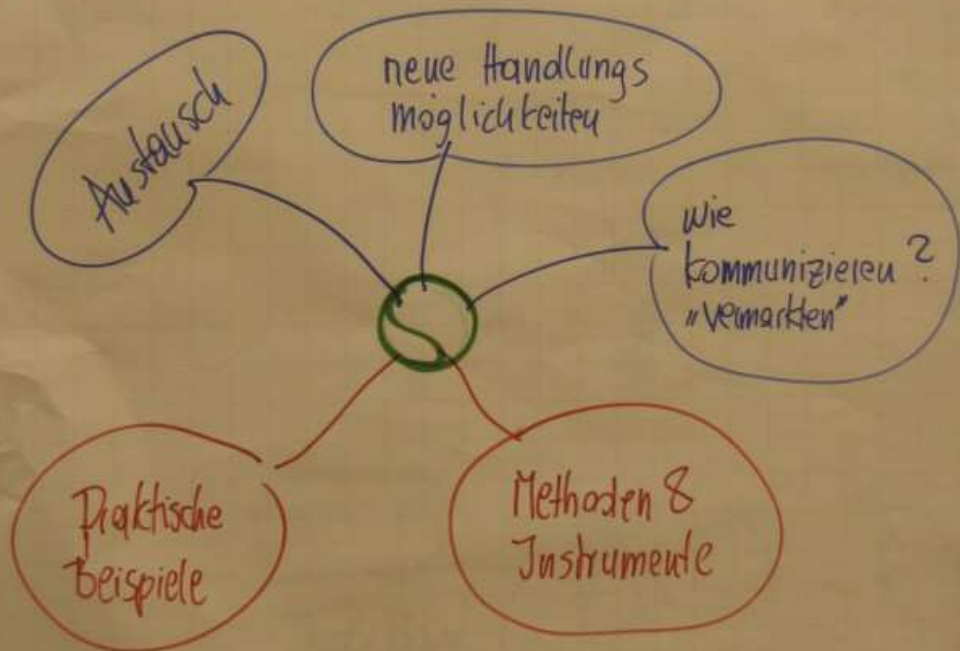 Austausch
neue Handlungs
möglichkeiten
wie
kommunizieren ?
"vermarkten"
Praktische
beispiele
Methoden &
Instrumente